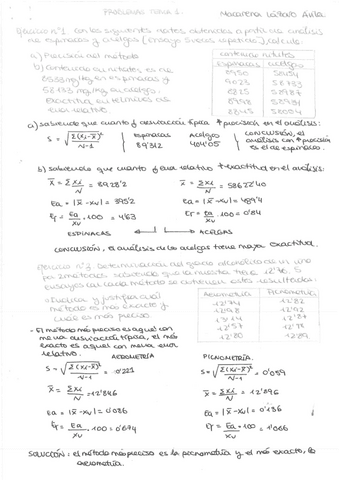 PROBLEMAS TEMA 1. Macarena Lázaro Avila
Ejercicio nº1. con los siguientes datos obtenidos a partir de análisis
de espinacas y acelgas (ensayo 5 veces repetido), calcula:
a) Precisión del método
b) contenido en nitratos, es de
8533 mg/kg en espinacas y
58133 mg/kg en acelga.
Exactitud en términos de
error relativo.
contenido nitratos
Espinacas acelgas
8950 58054
9023 58783
6815 58987
8898 58934
8845 58054
a) sabiendo que cuanto ↓ desviación típica ↑ precisión en el análisis:
S = √Σ(xi-x̄)²/N-1
Espinacas Acelga
89'312 404'05
CONCLUSIÓN, el análisis con ↑ precisión es el de espinacas.
b) sabiendo que cuanto ↓ error relativo ↑ exactitud en el análisis:
x̄ = Σxi/N = 8928'2 x̄ = Σxi/N = 58622'40
Ea = |x̄ - xv| = 395'2 Ea = |x̄ - xv| = 489'4
Er = Ea/xv · 100 = 4'63 Er = Ea/xv · 100 = 0'84
ESPINACAS ACELGAS
CONCLUSIÓN, el análisis de las acelgas tiene mayor exactitud.
Ejercicio nº2. Determinación del grado alcohólico de un vino
por 2 métodos, sabiendo que la muestra tiene 12'76. 5
ensayos con cada método se obtienen estos resultados:
• Evaluar y justificar cuál
método es más exacto y
cuál es más preciso.
Aerometría Picnometría
12'74 12'82
12'98 12'92
13'14 12'87
12'57 12'98
12'80 12'89
- El método más preciso es aquel con
menor desviación típica, el más
exacto es aquel con menor error
relativo.
AEROMETRÍA PICNOMETRÍA.
S = √Σ(xi-x̄)²/N-1 = 0'221 S = √Σ(xi-x̄)²/N-1 = 0'059
x̄ = Σxi/N = 12'846 x̄ = Σxi/N = 12'896
Ea = |x̄ - xv| = 0'086 Ea = |x̄ - xv| = 0'136
Er = Ea/xv · 100 = 0'674 Er = Ea/xv · 100 = 1'066
SOLUCIÓN: el método más preciso es la picnometría y el más exacto, la
aerometría.